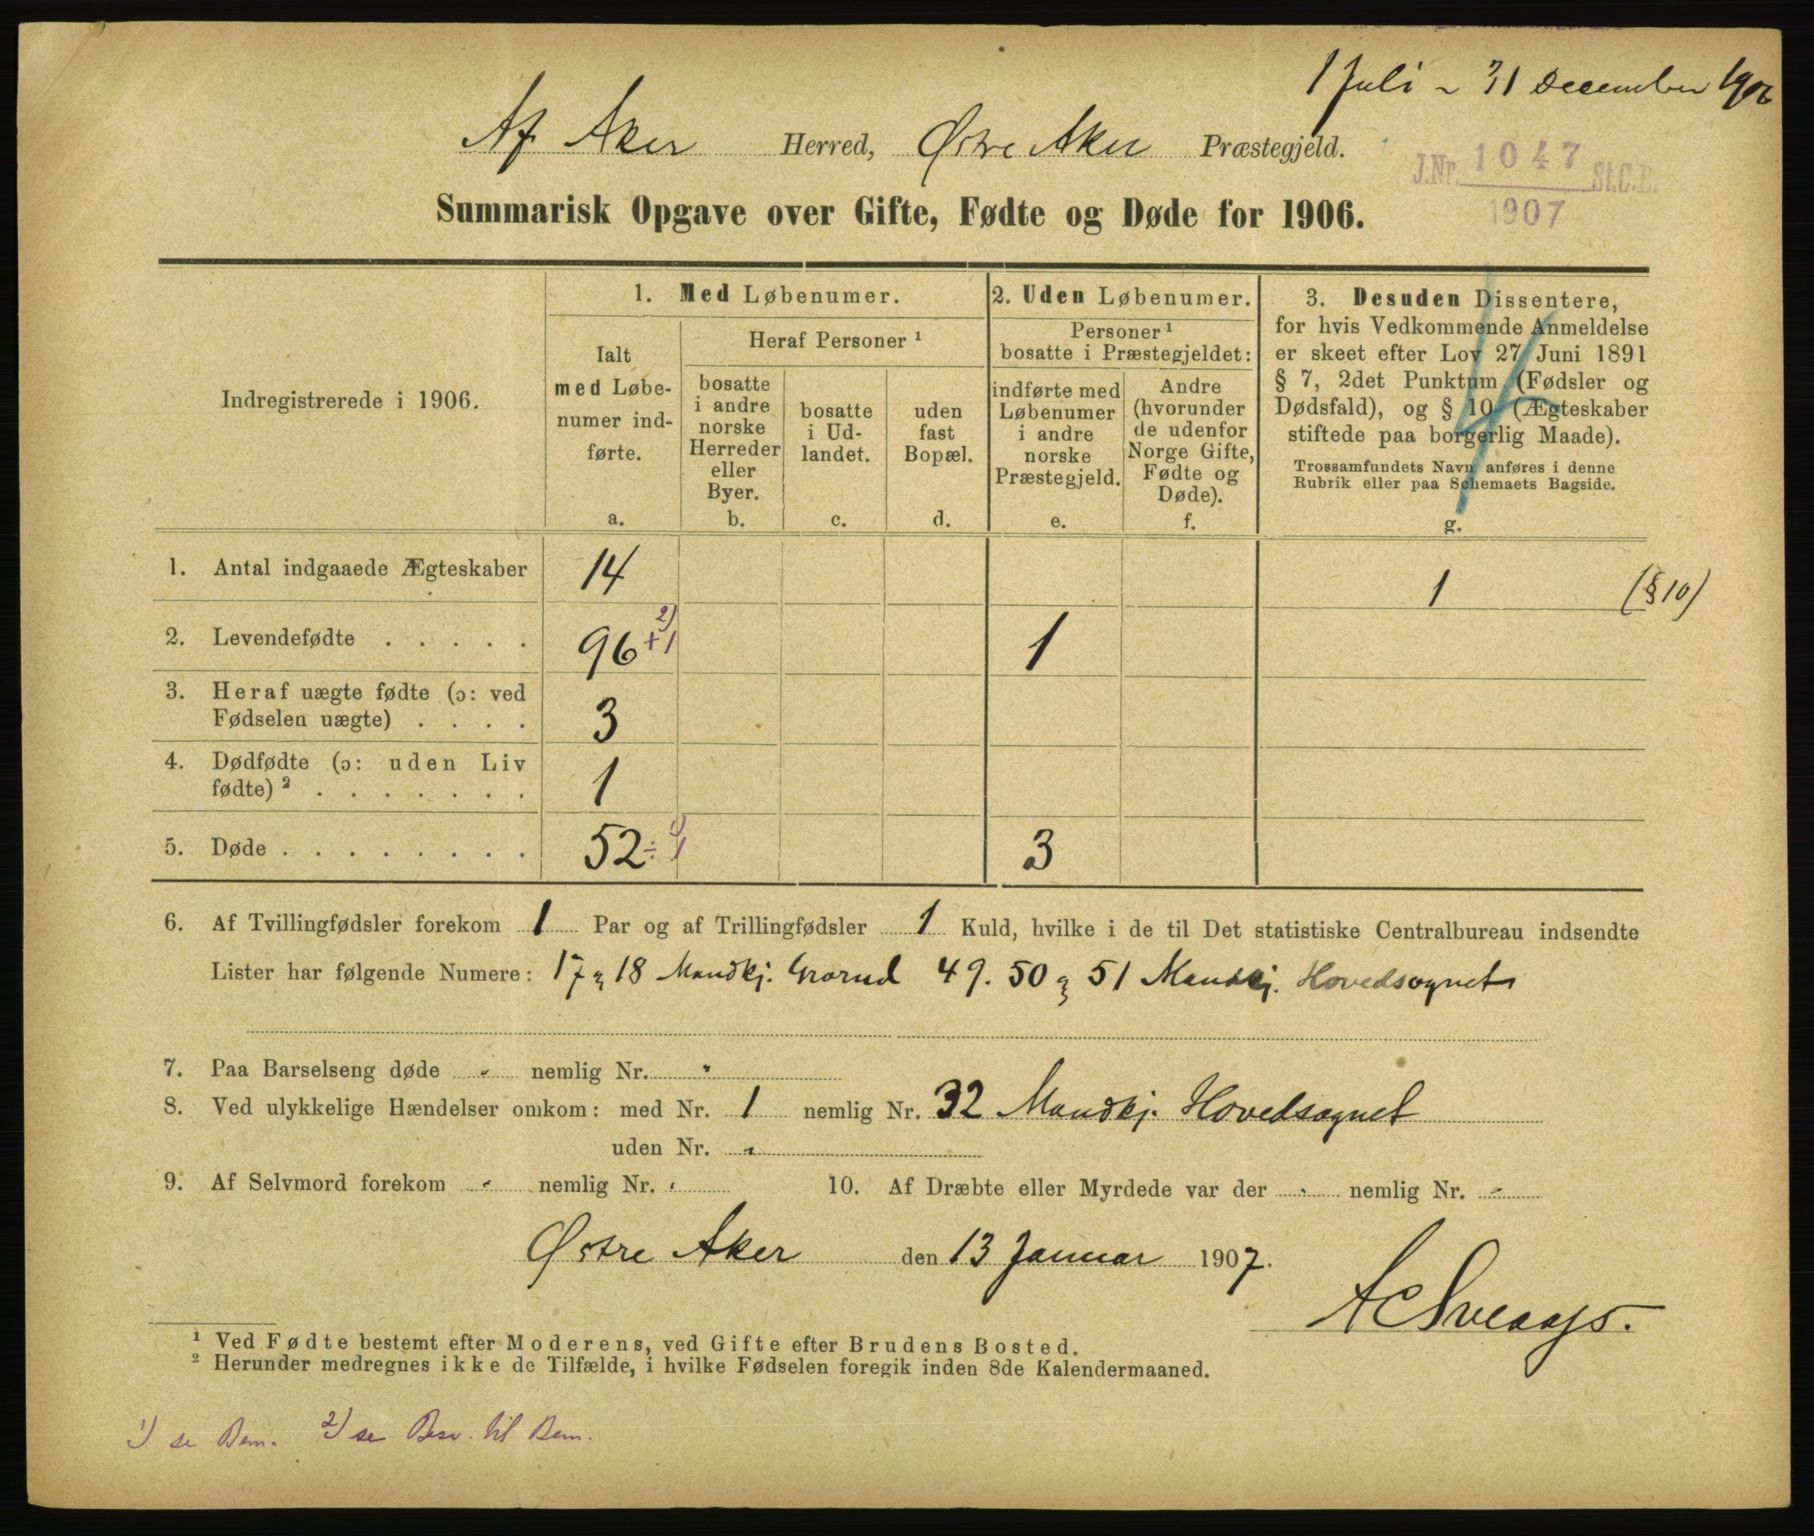 1 Juli - 31 December 1906
Af Aker Herred, Østre Aker Præstegjeld.
J.Nr. 1047 St.C.B.
1907
Summarisk Opgave over Gifte, Fødte og Døde for 1906.
Indregistrerede i 1906.
1. Med Løbenumer.
Ialt
med Løbe-
numer ind-
førte.
a.
Heraf Personer ¹
bosatte
i andre
norske
Herreder
eller
Byer.
b.
bosatte
i Ud-
landet.
c.
uden
fast
Bopæl.
d.
2. Uden Løbenumer.
Personer ¹
bosatte i Præstegjeldet:
indførte med
Løbenumer
i andre
norske
Præstegjeld.
e.
Andre
(hvorunder
de udenfor
Norge Gifte,
Fødte og
Døde).
f.
3. Desuden Dissentere,
for hvis Vedkommende Anmeldelse
er skeet efter Lov 27 Juni 1891
§ 7, 2det Punktum (Fødsler og
Dødsfald), og § 10 (Ægteskaber
stiftede paa borgerlig Maade).
Trossamfundets Navn anføres i denne
Rubrik eller paa Schemaets Bagside.
g.
1. Antal indgaaede Ægteskaber 14 1 (§ 10)
2. Levendefødte . . . . . 96 +1 2) 1
3. Heraf uægte fødte (ɔ: ved
Fødselen uægte) . . . . 3
4. Dødfødte (ɔ: uden Liv
fødte) ² . . . . . . . 1
5. Døde . . . . . . . . 52 ÷ 1 1) 3
6. Af Tvillingfødsler forekom 1 Par og af Trillingfødsler 1 Kuld, hvilke i de til Det statistiske Centralbureau indsendte
Lister har følgende Numere: 17 & 18 Mandkj. Grorud 49. 50 & 51 Mandkj. Hovedsognet
7. Paa Barselseng døde " nemlig Nr. "
8. Ved ulykkelige Hændelser omkom: med Nr. 1 nemlig Nr. 32 Mandkj. Hovedsognet
uden Nr. "
9. Af Selvmord forekom " nemlig Nr. " 10. Af Dræbte eller Myrdede var der " nemlig Nr. "
Østre Aker den 13 Januar 1907.
¹ Ved Fødte bestemt efter Moderens, ved Gifte efter Brudens Bosted.
² Herunder medregnes ikke de Tilfælde, i hvilke Fødselen foregik inden 8de Kalendermaaned.
1) se Bem. 2) se Besv. til Bem.